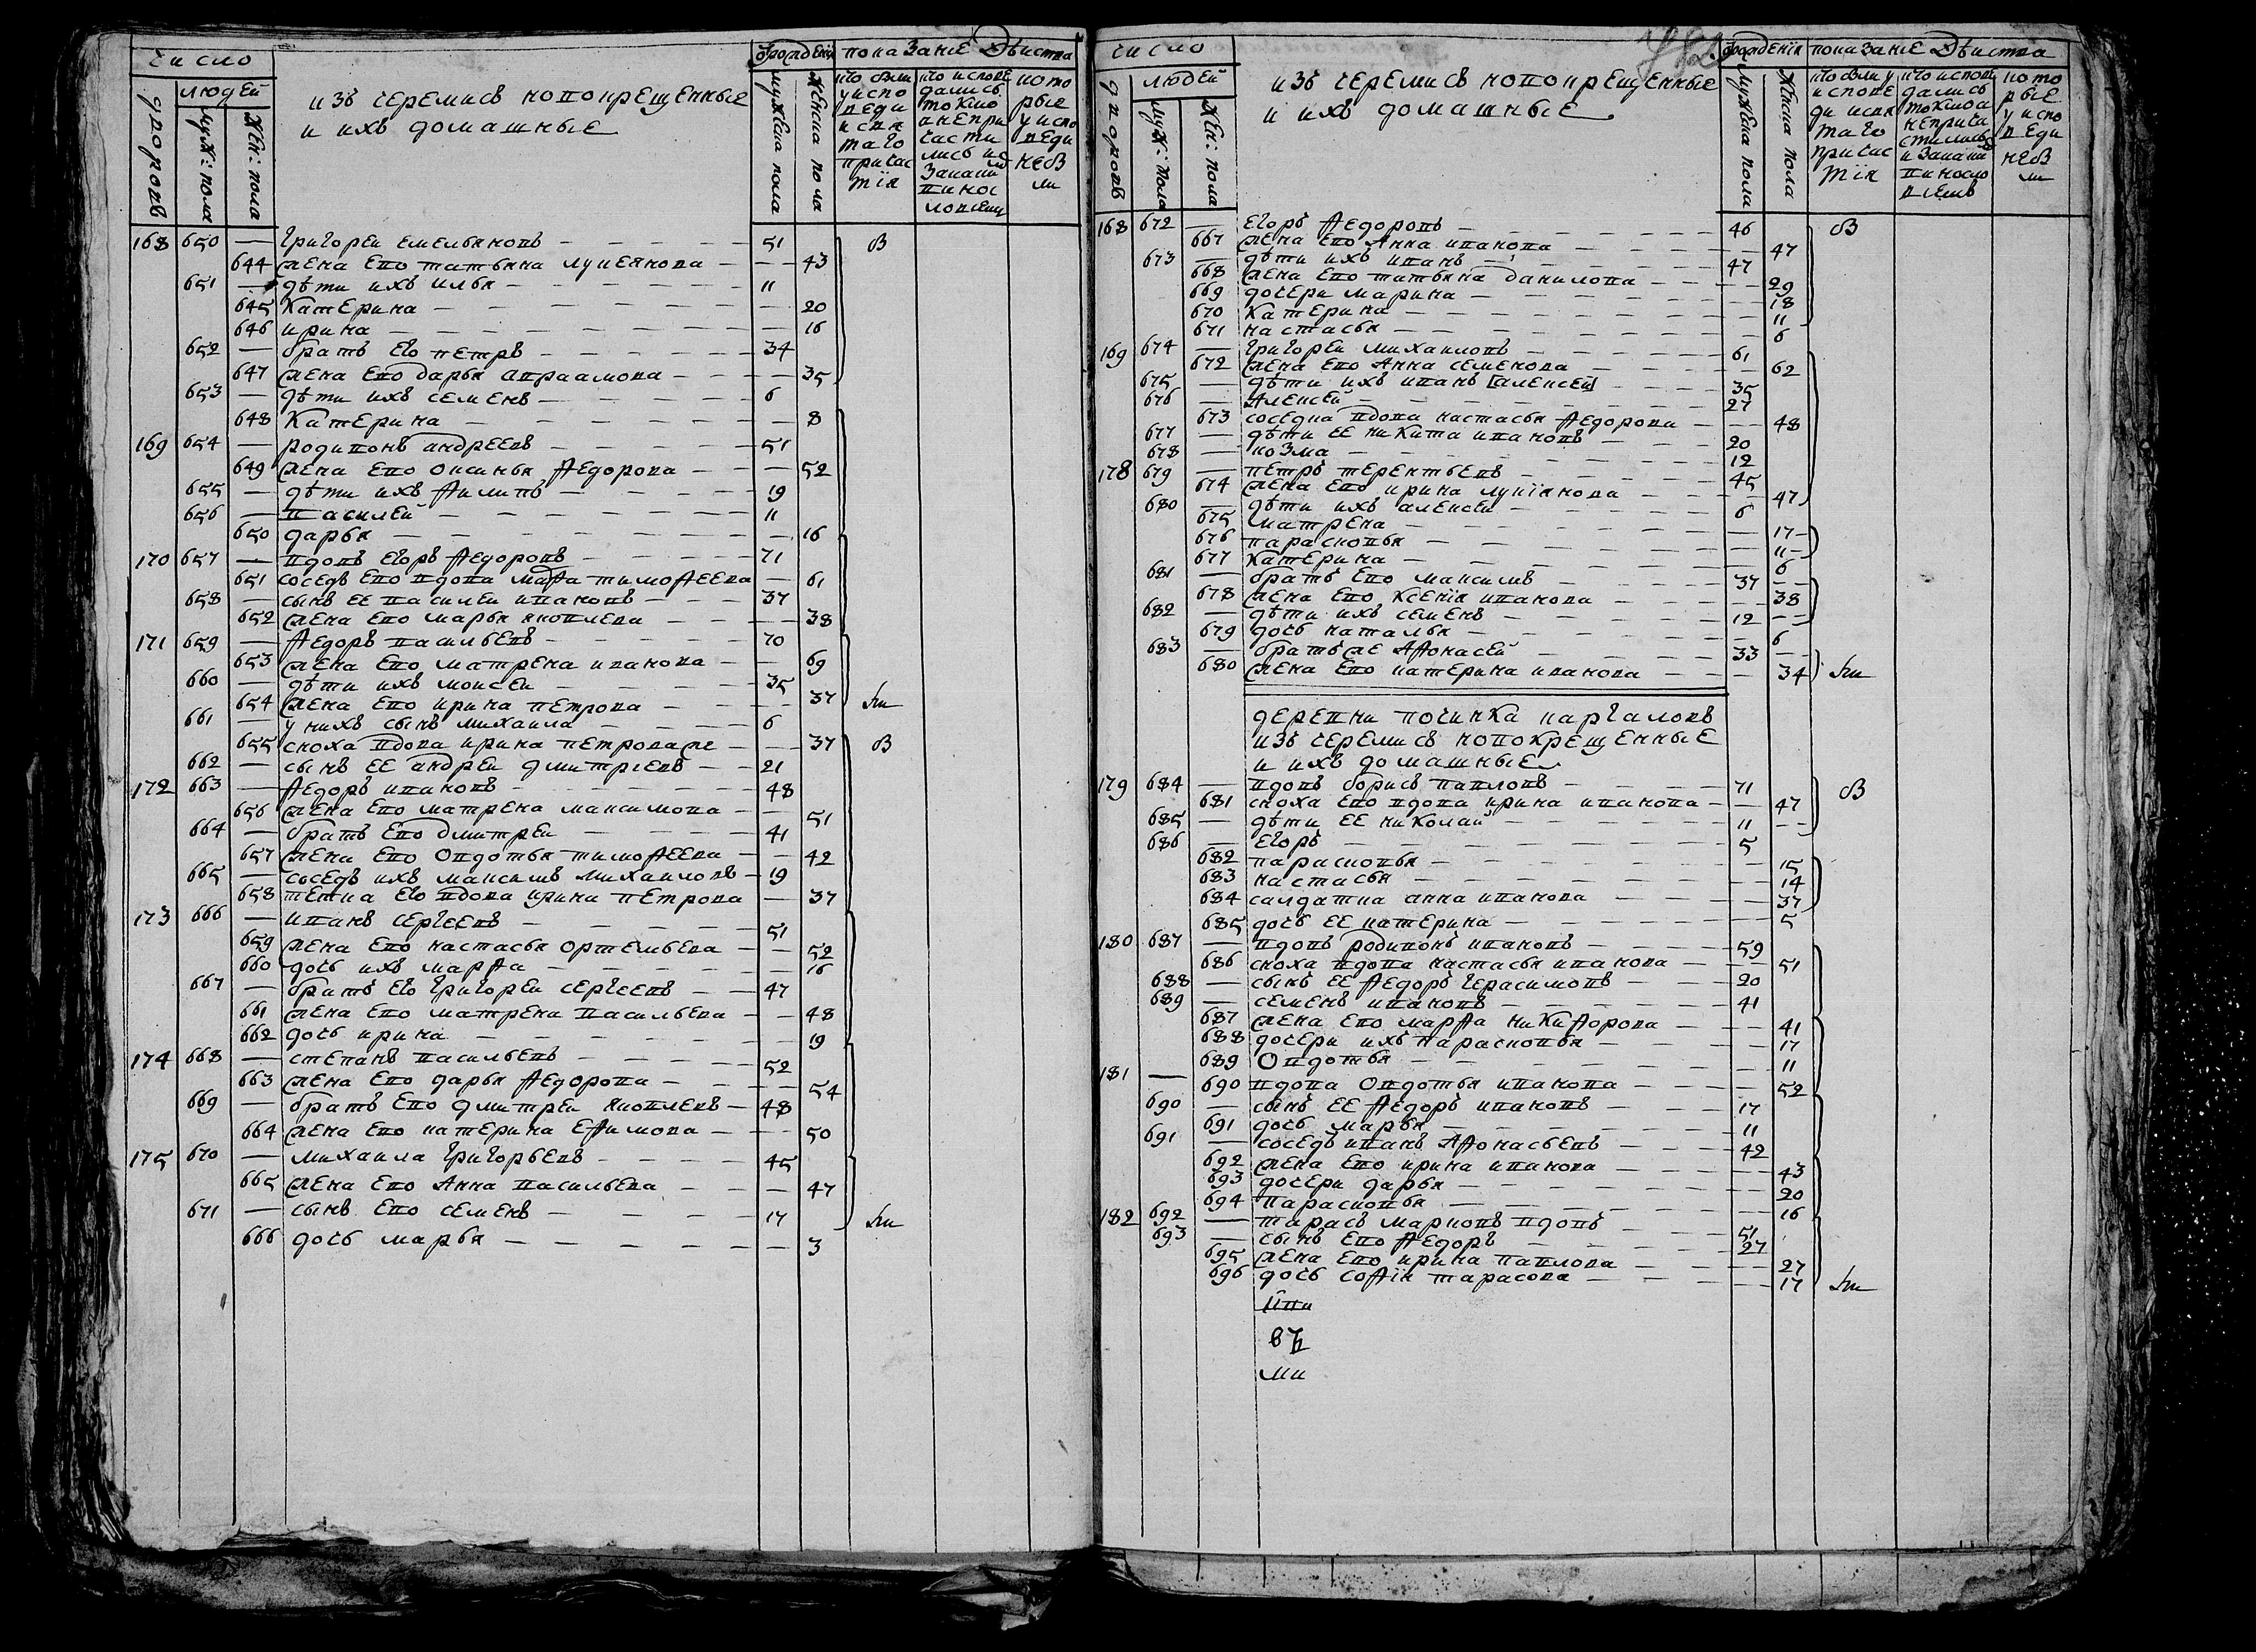 число
людей
дворовъ
муж: пола
жен: пола
изъ черемисъ новокрещенные
и ихъ домашные
отрождения
мужеска пола
женска пола
показание действа
кто были
у испо
веди
и свя
таго
причас
тія
кто испове
дались
токмо
а не при
части
лись
которые
у испо
веди
не б
ли
168 650 — Григореи емельяновъ — 51 — б
644 жена ево татьяна лукеянова — 43
651 — дѣти ихъ илья — 11
645 катерина — 20
646 ирина — 16
652 — братъ его петръ — 34
647 жена ево дарья авраамова — 35
653 — дѣти ихъ семенъ — 6
648 катерина — 8
169 654 — родивонъ андреевъ — 51
649 жена ево оксинья Ѳедорова — 52
655 — дѣти ихъ Ѳилипъ — 19
656 — василей — 11
650 дарья — 16
170 657 — вдовъ егоръ Ѳедоровъ — 71
651 соседъ ево вдова марѲа тимоѲеева — 61
658 — сынъ ее василеи ивановъ — 37
652 жена ево марья яковлева — 38
171 659 — Ѳедоръ васильевъ — 70
653 жена ево матрена иванова — 69
660 — дѣти ихъ моисеи — 35
654 жена ево ирина петрова — 37
661 — у нихъ сынъ михаила — 6
655 сноха вдова ирина петрова же — 37 б
662 — сынъ ее андреи дмитриевъ — 21
172 663 — Ѳедоръ ивановъ — 48
656 жена ево матрена максимова — 51
664 — братъ ево дмитреи — 41
657 жена ево овдотья тимоѲеева — 42
665 — соседъ ихъ максимъ михаиловъ — 19
658 тетка его вдова ирина петрова — 37
173 666 — иванъ сергеевъ — 51
659 жена ево настасья ортемьева — 52
660 дочь ихъ марѲа — 16
667 — братъ его григореи сергеевъ — 47
661 жена ево матрена васильева — 48
662 дочь ирина — 19
174 668 — степанъ васильевъ — 52
663 жена ево дарья Ѳедорова — 54
669 — братъ ево дмитреи яковлевъ — 48
664 жена ево катерина еѲимова — 50
175 670 — михаила григорьевъ — 45
665 жена ево анна васильева — 47
671 — сынъ ево семенъ — 17
666 дочь марья — 3
число
людей
дворовъ
муж: пола
жен: пола
изъ черемисъ новокрещенные
и ихъ домашные
отрожденія
мужеска пола
женска пола
показание действа
кто были у
и спове
ди и свя
таго
причас
тія
кто испове
дались
токмо а
не прича
стились
которые
у испо
веди
не б
ли
168 672 — Егоръ Ѳедоровъ — 46 б
667 жена ево анна иванова — 47
673 — дѣти ихъ иванъ — 47
668 жена ево татьяна данилова — 29
669 дочери марина — 18
670 катерина — 11
671 настасья — 6
169 674 — григореи михаиловъ — 61
672 жена ево анна семенова — 62
675 — дѣти ихъ иванъ [алексей] — 35
676 — алексей — 27
673 соседка вдова настасья Ѳедорова — 48
677 — дѣти ее никита ивановъ — 20
678 — козма — 12
178 679 — петръ терентьевъ — 45
674 жена ево ирина лукіянова — 47
680 — дѣти ихъ алексеи — 6
675 матрена — 17
676 парасковья — 11
677 катерина — 6
681 — братъ ево максимъ — 37
678 жена ево ксенія иванова — 38
682 — дѣти ихъ семенъ — 12
679 дочь наталья — 6
683 — братъ же аѲонасей — 33
680 жена ево катерина иванова — 34
деревни починка карчаловъ
изъ черемисъ новокрещенные
и ихъ домашные
179 684 — вдовъ борисъ павловъ — 71 б
681 сноха ево вдова ирина иванова — 47
685 — дѣти ее николай — 11
686 — егоръ — 5
682 парасковья — 15
683 настасья — 14
684 салдатка анна иванова — 37
685 дочь ее катерина — 5
180 687 — вдовъ родивонъ ивановъ — 59
686 сноха вдова настасья иванова — 51
688 — сынъ ее Ѳедоръ герасимовъ — 20
689 — семенъ ивановъ — 41
687 жена ево марѲа никиѲорова — 41
688 дочери ихъ парасковья — 17
689 овдотья — 11
181 — 690 вдова овдотья иванова — 52
690 — сынъ ее Ѳедоръ ивановъ — 17
691 дочь марья — 11
691 — соседъ иванъ аѲонасьевъ — 42
692 жена ево ирина иванова — 43
693 дочери дарья — 20
694 парасковья — 16
182 692 — тарасъ марковъ вдовъ — 51
693 — сынъ ево Ѳедоръ — 27
695 жена ево ирина павлова — 27
696 дочь соѲія тарасова — 17
ми